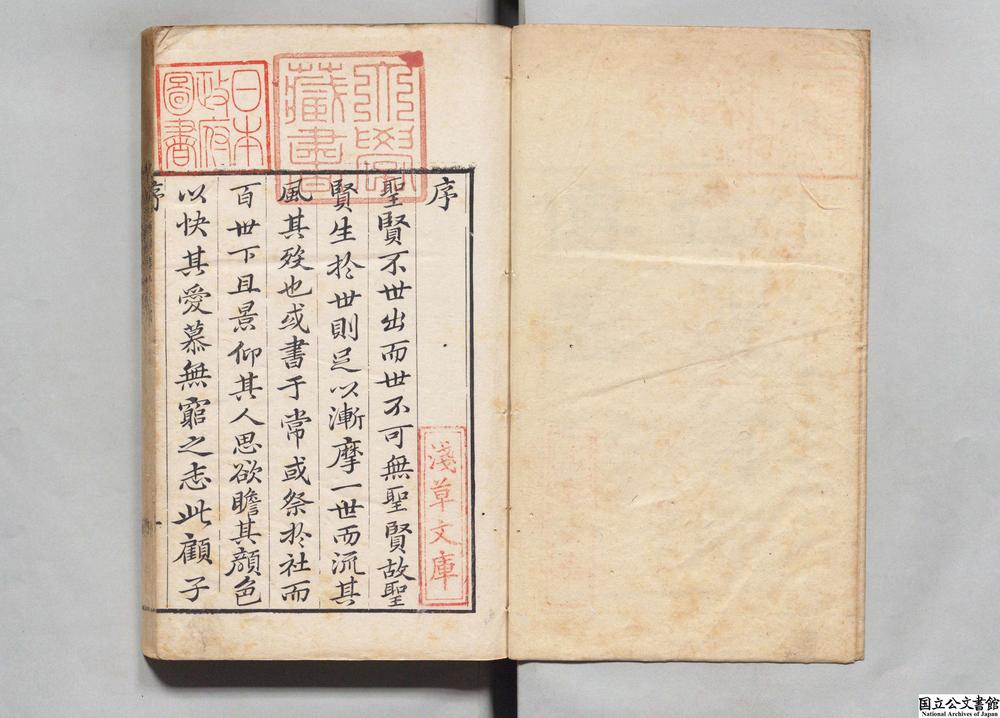 序
聖賢不世出而世不可無聖賢故聖
賢生於世則足以漸摩一世而流其
風其歿也或書于常或祭於社而
百世下且景仰其人思欲瞻其顔色
以快其愛慕無窮之志此顧子
序
一
日本
政府
圖書
藏書
淺草文庫
国立公文書館
National Archives of Japan